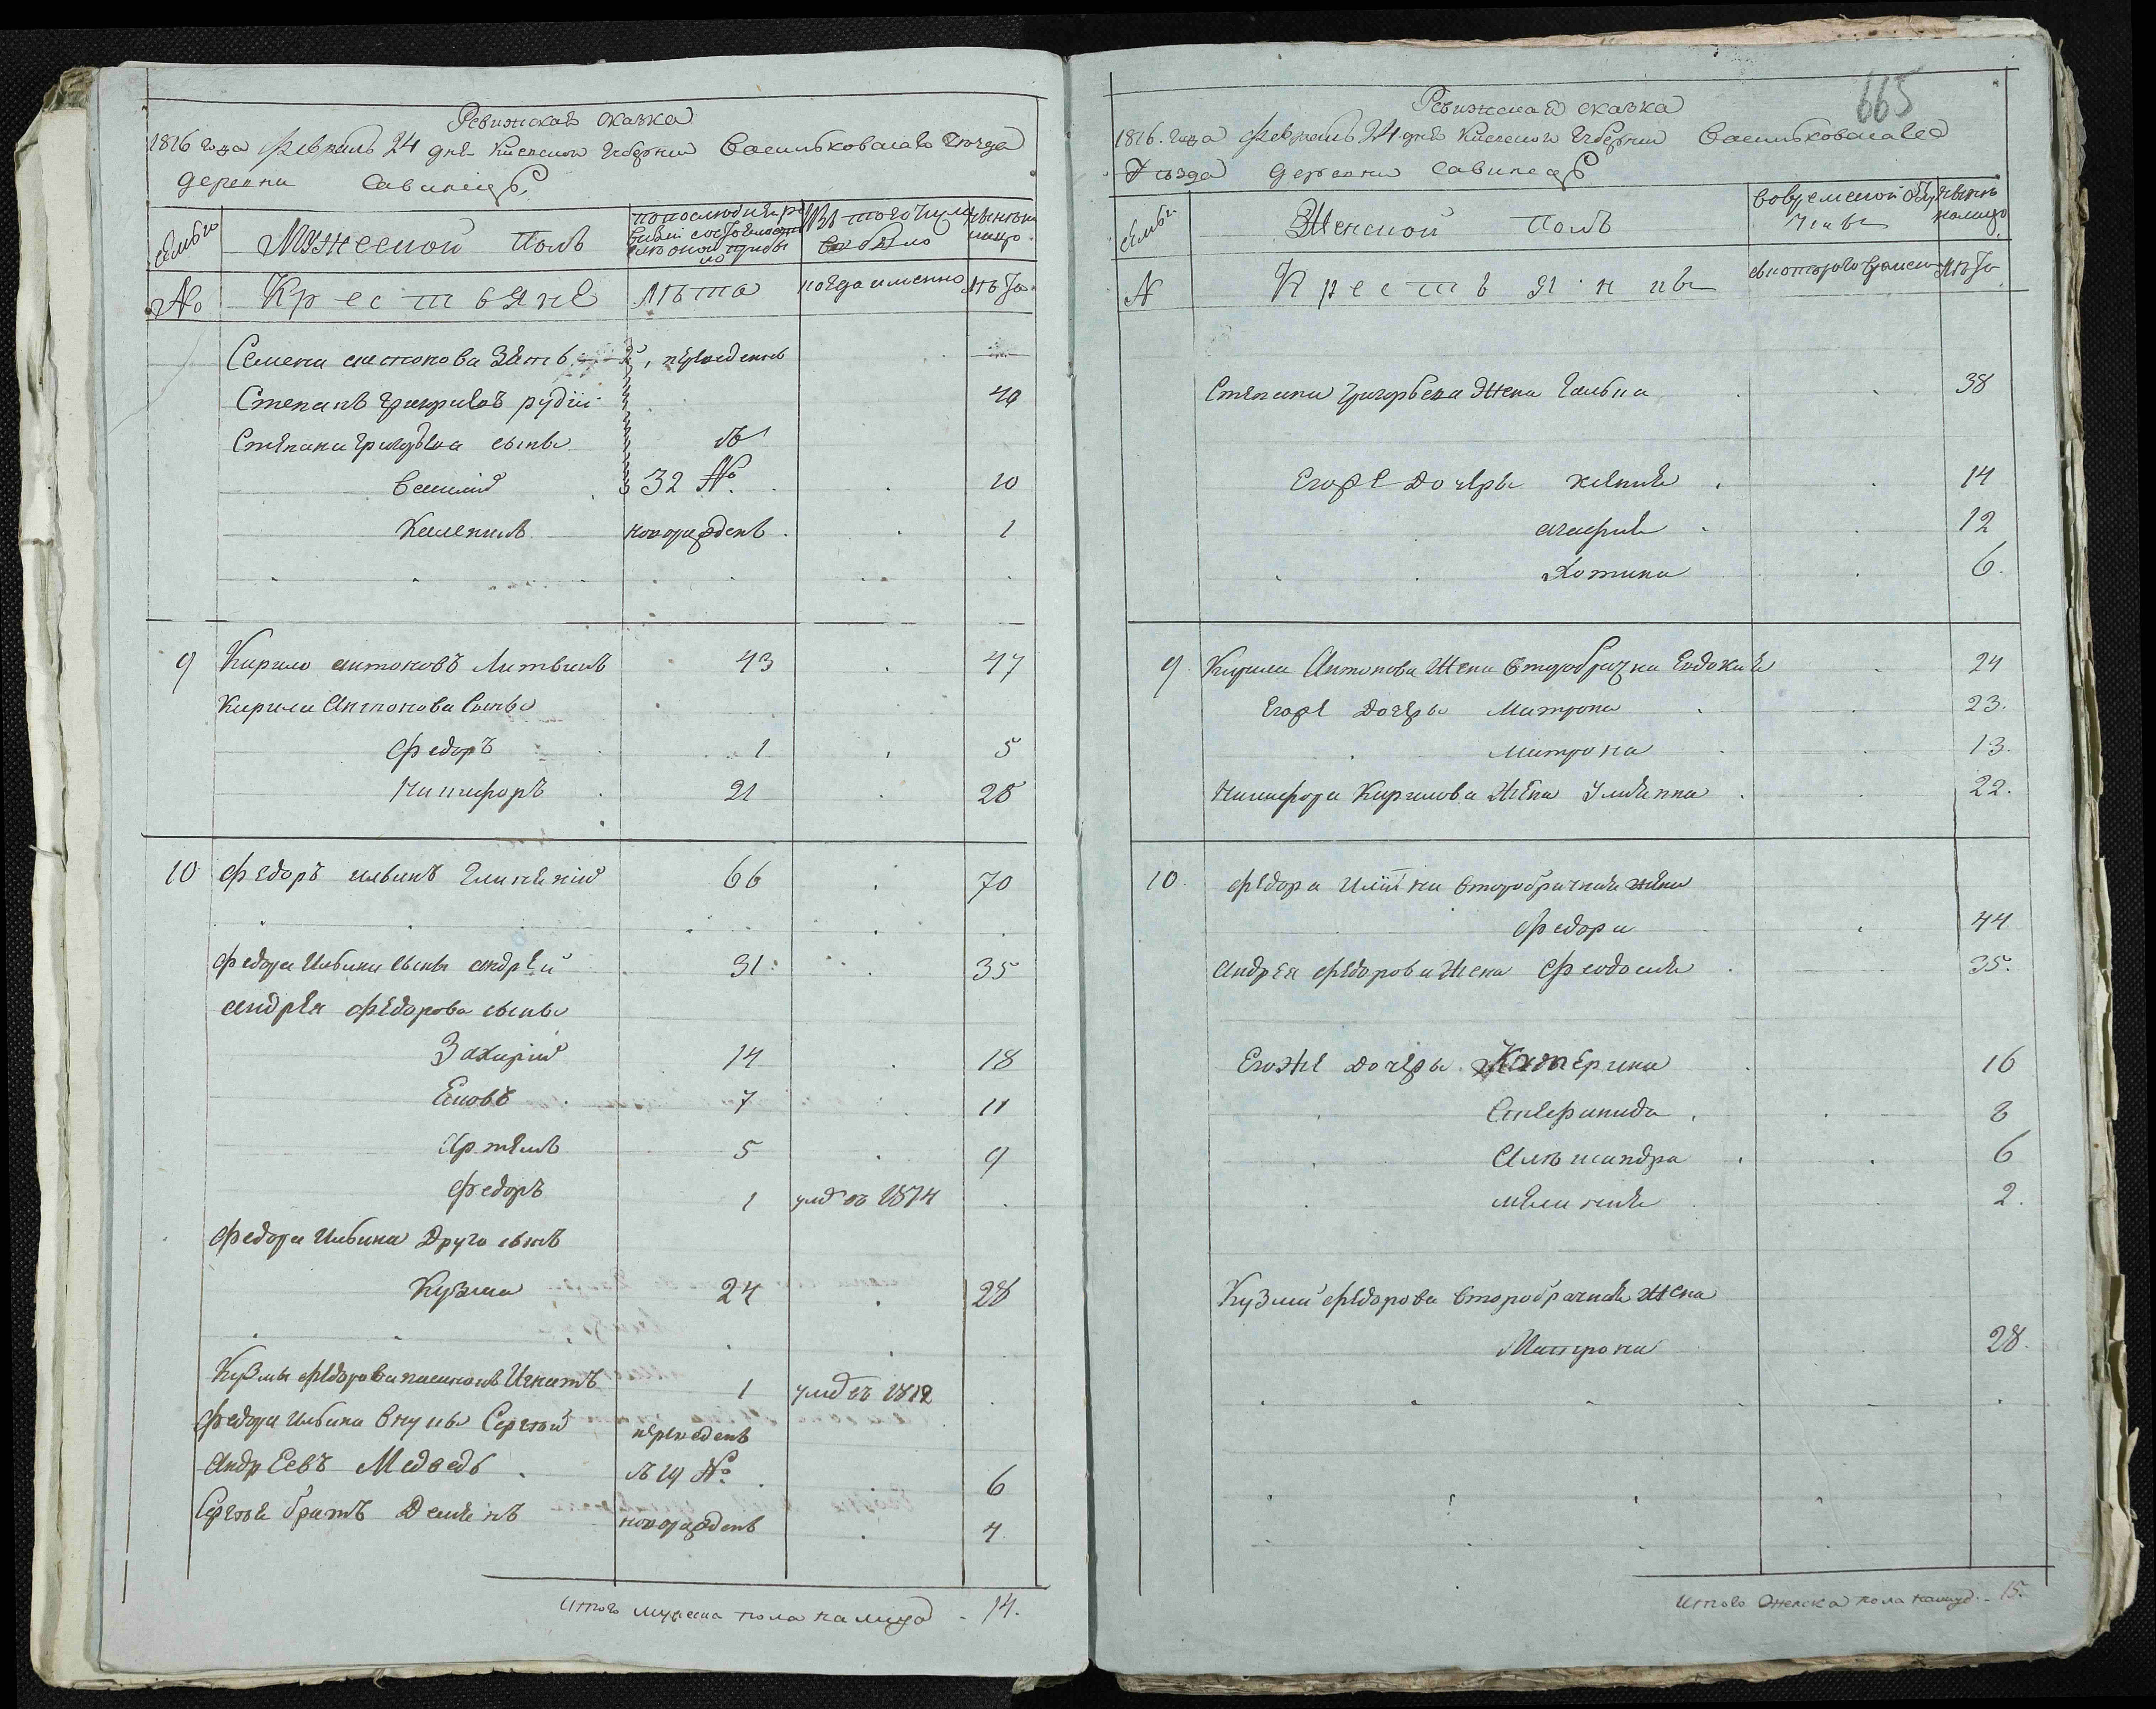 Ревижская сказка
1816 года февраль 24 дня Киевской губернии Васильковскаго уезда
деревни Савинецъ
Мужеской полъ
№ Крестьяне лѣта когда именно лѣта
Семена антонова зять переведенъ
Степанъ григоріевъ рудій 40
Степана григорьева сыны съ
Василій 32 №. 10
Каленикъ новорожденъ 1
9 Кирило антоновъ Литвинъ 43 47
Кирила Антонова сыны
Федоръ 1 5
Никифоръ 21 25
10 Федоръ ильинъ 66 70
Федора Ильина сынъ андрей 31 35
андрея федорова сыны
Захарій 14 18
Яковъ 7 11
Артемъ 5 9
Федоръ 1 умд въ 1814
Федора Ильина Друго сынъ
Кузма 24 28
Кузмы федорова пасынокъ Игнатъ 1 умд въ 1812
Федора Ильина внуки Сергѣй переведенъ
Андреевъ Медведь съ 19 № 6
Сергѣя братъ Демянъ новорожденъ 4
Итого мужеска пола налицо 14.
665
Ревижская сказка
1816. года февраль 24 дня Киевской губернии Васильковскаго
Уѣзда деревни Савинецъ
Женской полъ
№ Крестьянки лѣта
Степана григорьева жена 38
Егоже дочеры ксения 14
агафия 12
Хотина 6.
9. Кирила Антонова жена второбрачна Евдокия 24
Егоже дочеры Матрона 23.
Матрона 13.
Никифора Кирилова жена Улиянна 22.
10. Федора Иліина второбрачная жена
Федора 44
Андрея федорова жена Феодосия 35.
Егоже дочеры Катерина 16
Степанида 8
Алѣксандра 6
Мелания 2.
Кузмы федорова второбрачная жена
Матрона 28.
Итого женска пола налицо 15.